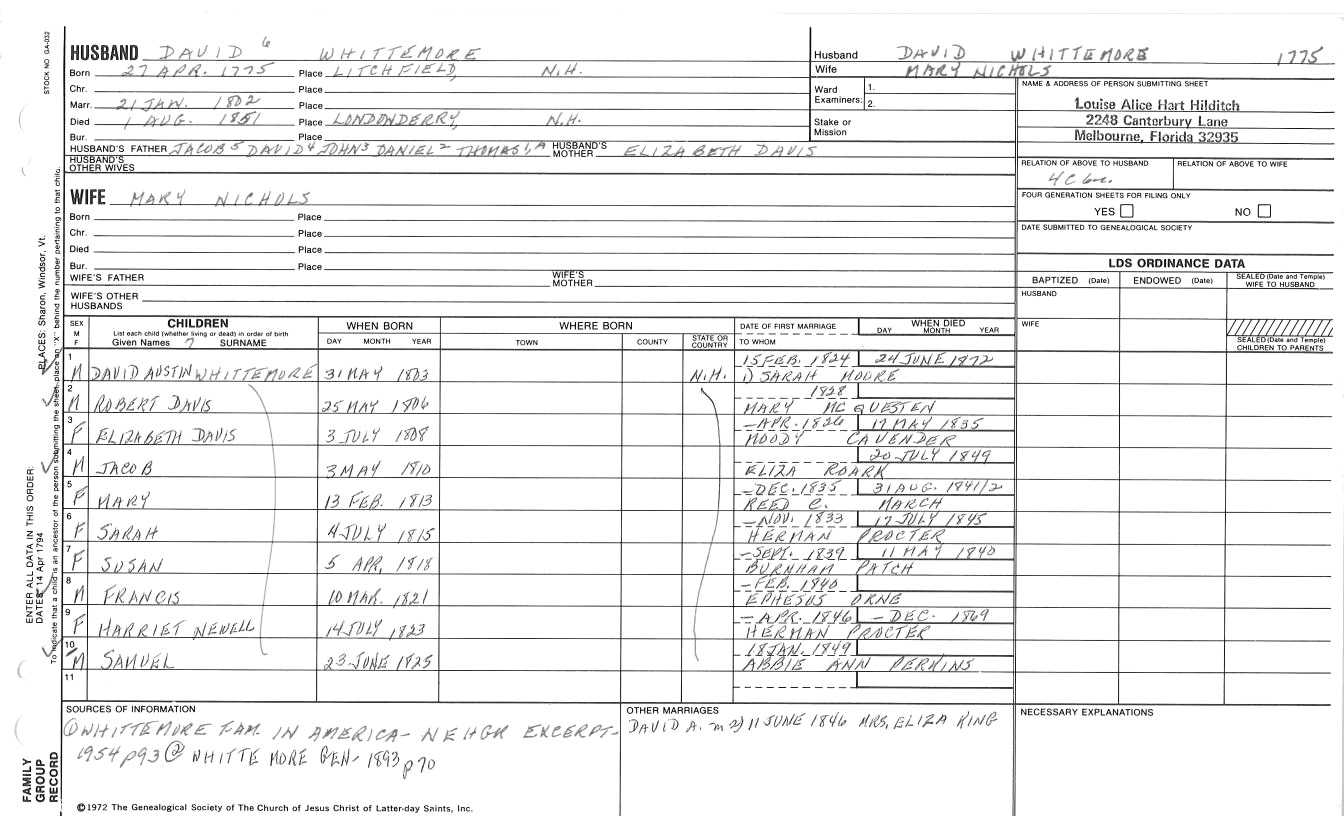 STOCK NO GA-032
HUSBAND DAVID 6 WHITTEMORE
Born 27 APR. 1775 Place LITCHFIELD, N.H.
Chr. Place
Marr. 21 JAN. 1802 Place
Died 1 AUG. 1851 Place LONDONDERRY, N.H.
Bur. Place
HUSBAND'S FATHER JACOB 5 DAVID 4 JOHN 3 DANIEL 2 THOMAS 1, A HUSBAND'S MOTHER ELIZABETH DAVIS
HUSBAND'S OTHER WIVES
WIFE MARY NICHOLS
Born Place
Chr. Place
Died Place
Bur. Place
WIFE'S FATHER WIFE'S MOTHER
WIFE'S OTHER HUSBANDS
Husband DAVID WHITTEMORE 1775
Wife MARY NICHOLS
Ward Examiners: 1. 2.
Stake or Mission
NAME & ADDRESS OF PERSON SUBMITTING SHEET
Louise Alice Hart Hilditch
2248 Canterbury Lane
Melbourne, Florida 32935
RELATION OF ABOVE TO HUSBAND RELATION OF ABOVE TO WIFE
4C
FOUR GENERATION SHEETS FOR FILING ONLY
YES NO
DATE SUBMITTED TO GENEALOGICAL SOCIETY
LDS ORDINANCE DATA
BAPTIZED (Date) ENDOWED (Date) SEALED (Date and Temple) WIFE TO HUSBAND
HUSBAND
WIFE
SEALED (Date and Temple) CHILDREN TO PARENTS
SEX M F CHILDREN WHEN BORN WHERE BORN DATE OF FIRST MARRIAGE WHEN DIED
List each child (whether living or dead) in order of birth
Given Names 7 SURNAME DAY MONTH YEAR TOWN COUNTY STATE OR COUNTRY TO WHOM DAY MONTH YEAR
1 15 FEB. 1824 24 JUNE 1872
M DAVID AUSTIN WHITTEMORE 31 MAY 1803 N.H. 1) SARAH MOORE
2 1828
M ROBERT DAVIS 25 MAY 1806 MARY MC QUESTEN
3 -APR. 1826 17 MAY 1835
F ELIZABETH DAVIS 3 JULY 1808 MOODY CAVENDER
4 20 JULY 1849
M JACOB 3 MAY 1810 ELIZA ROARK
5 -DEC. 1835 31 AUG. 1841/2
F MARY 13 FEB. 1813 REED C. MARCH
6 -NOV. 1833 17 JULY 1845
F SARAH 4 JULY 1815 HERMAN PROCTER
7 -SEPT. 1839 11 MAY 1840
F SUSAN 5 APR, 1818 BURNHAM PATCH
8 -FEB. 1840
M FRANCIS 10 MAR. 1821 EPHESUS ORNE
9 -APR. 1846 -DEC. 1869
F HARRIET NEWELL 14 JULY 1823 HERMAN PROCTER
10 18 JAN. 1849
M SAMUEL 23 JUNE 1825 ABBIE ANN PERKINS
11
SOURCES OF INFORMATION
① WHITTEMORE FAM. IN AMERICA- NEHGR EXCERPT-
1954 p93 ② WHITTEMORE GEN- 1893 p 70
OTHER MARRIAGES
DAVID A. m 2) 11 JUNE 1846 MRS. ELIZA KING
NECESSARY EXPLANATIONS
©1972 The Genealogical Society of The Church of Jesus Christ of Latter-day Saints, Inc.
FAMILY
GROUP
RECORD
ENTER ALL DATA IN THIS ORDER:
DATES: 14 Apr 1794
PLACES: Sharon, Windsor, Vt.
To indicate that a child is an ancestor of the person submitting the sheet, place an "X" behind the number pertaining to that child.